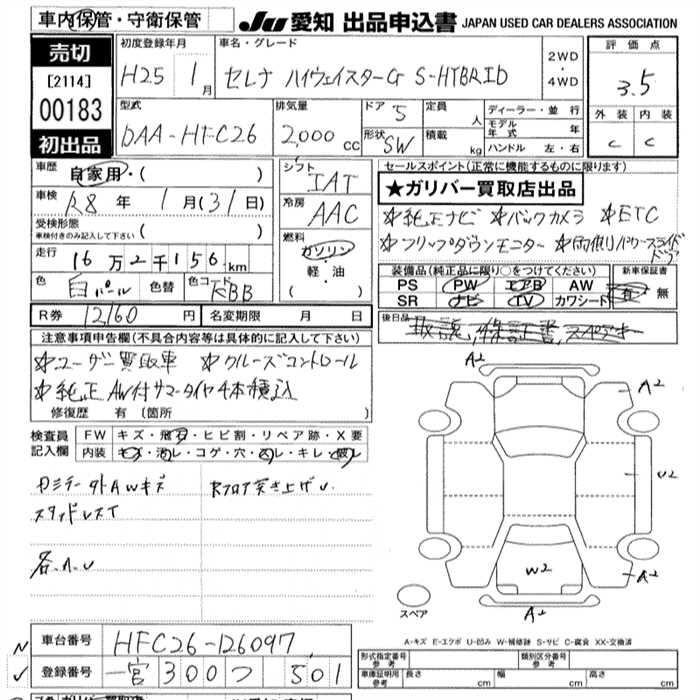 車内保管・守衛保管
JU 愛知 出品申込書 JAPAN USED CAR DEALERS ASSOCIATION
売切
[2114]
00183
初出品
初度登録年月
H25 1月
車名・グレード
セレナ ハイウェイスターG S-HYBRID
2WD
・
4WD
評価点
3.5
外装 内装
C C
型式
DAA-HFC26
排気量
2,000 cc
ドア 5
形状 SW
定員 人
積載 kg
ディーラー・並行
モデル年式 年
ハンドル 左・右
車歴
自家用・( )
車検 R8 年 1月(31日)
受検形態
車検付きのみ記入して下さい ( )
走行
16万2千156km
色 白パール 色替 色コード
シフト
IAT
冷房
AAC
燃料
ガソリン
・
軽・油
( )
セールスポイント(正常に機能するものに限ります)
★ガリバー買取店出品
☆純正ナビ ☆バックカメラ ☆ETC
☆フリップダウンモニター ☆両側パワースライドドア
装備品(純正品に限り○をつけてください)
PS PW エアB AW
SR ナビ TV カワシート
新車保証書
有・無
R券 12160円 名変期限 月 日
後日品
取説, 保証書, スペアキー
注意事項申告欄(不具合内容等は具体的に記入して下さい)
☆ユーザー買取車 ☆クルーズコントロール
☆純正AW付サマータイヤ4本積込
修復歴 有 〔箇所 〕
検査員記入欄
FW キズ・飛石・ヒビ割・リペア跡・X要
内装 キズ・汚レ・コゲ・穴・スレ・キレ・破レ
スタッドレス
各.A.U
A2
A2
U2
W2
A2
A2
スペア
A-キズ E-エクボ U-凹み W-補修跡 S-サビ C-腐食 XX-交換済
車台番号 HFC26-126097
登録番号 一宮 300 つ 501
形式指定番号 参考
類別区分番号 参考
車庫証明用 参考 長さ cm 幅 cm 高さ cm